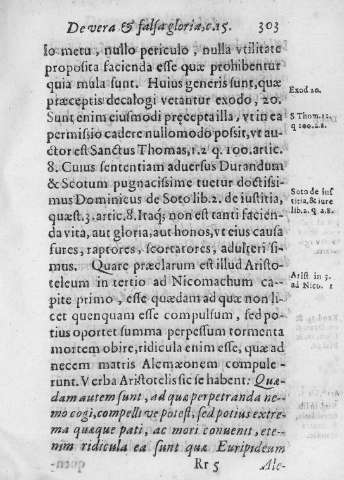 De vera & falsa gloria, c.15. 303
lo metu, nullo periculo, nulla vtilitate
proposita facienda esse quæ prohibentur
quia mala sunt. Huius generis sunt, quæ
præceptis decalogi vetantur exodo, 20.
Exod 20.
Sunt enim eiusmodi pręcepta illa, vt in ea
S Thom. 12.
permissio cadere nullomodo possit, vt au-
q 100.2.8.
ctor est Sanctus Thomas, 1.2 q. 100. artic.
8. Cuius sententiam aduersus Durandum
& Scotum pugnacissime tuetur doctissi-
mus Dominicus de Soto lib. 2. de iustitia,
Soto de ius
titia, & iure
quæst. 3. artic. 8. Itaq; non est tanti facien-
lib. 2. q. 2.8.
da vita, aut gloria, aut honos, vt eius causa
fures, raptores, scortatores, adulteri si-
mus. Quare præclarum est illud Aristo-
Arist in 3.
teleum in tertio ad Nicomachum ca-
ad Nico. 1
pite primo, esse quædam ad quæ non li-
cet quenquam esse compulsum, sed po-
tius oportet summa perpessum tormenta
mortem obire, ridicula enim esse, quæ ad
necem matris Alcmæonem compule-
runt. Verba Aristotelis sic se habent: Quæ-
dam autem sunt, ad quæ perpetranda ne-
mo cogi, compelli ve potest, sed potius extre-
ma quæque pati, ac mori conuenit, ete-
nim ridicula ea sunt quæ Euripideum
Rr 5 Alc-